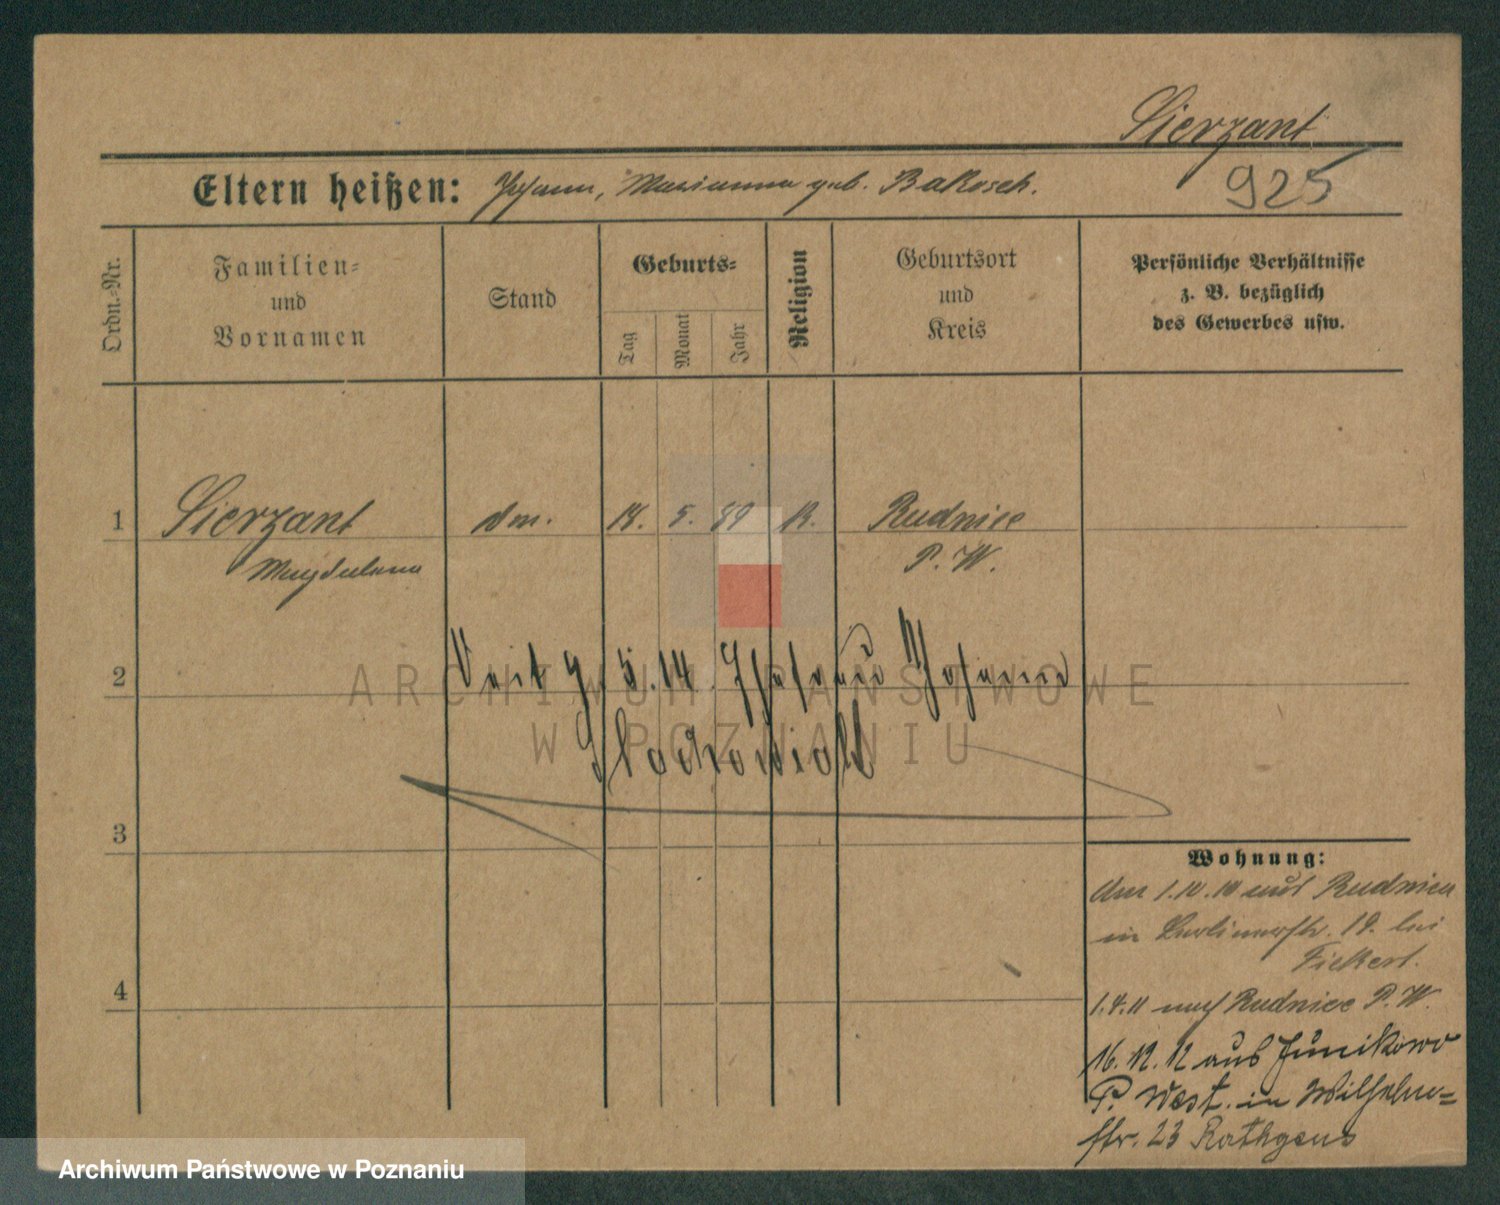 Sierzant
Eltern heißen: Johann, Marianna geb. Bakosch.
925
Ordn.-Nr.
Familien-
und
Vornamen
Stand
Geburts-
Tag
Monat
Jahr
Religion
Geburtsort
und
Kreis
Persönliche Verhältnisse
z. B. bezüglich
des Gewerbes usw.
1 Sierzant 5. 89 Rudnice
Magdalena P. W.
2 Seit 9. 5. 14. Ehefrau
3
4
Wohnung:
1.10.10 aus Rudnice
in Berlinerstr. 19. bei
Fickert.
1.4.11 nach Rudnice P. W.
16.12.12 aus Junikowo
P. West. in Wilhelm-
str. 23 Rathgens
ARCHIWUM PAŃSTWOWE
W POZNANIU
Archiwum Państwowe w Poznaniu